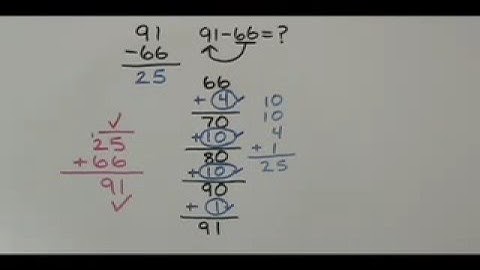 91
-66
25
91-66=?
66
+ 4
70
+ 10
80
+ 10
90
+ 1
91
10
10
4
+ 1
25
✓
1
25
+66
91
✓